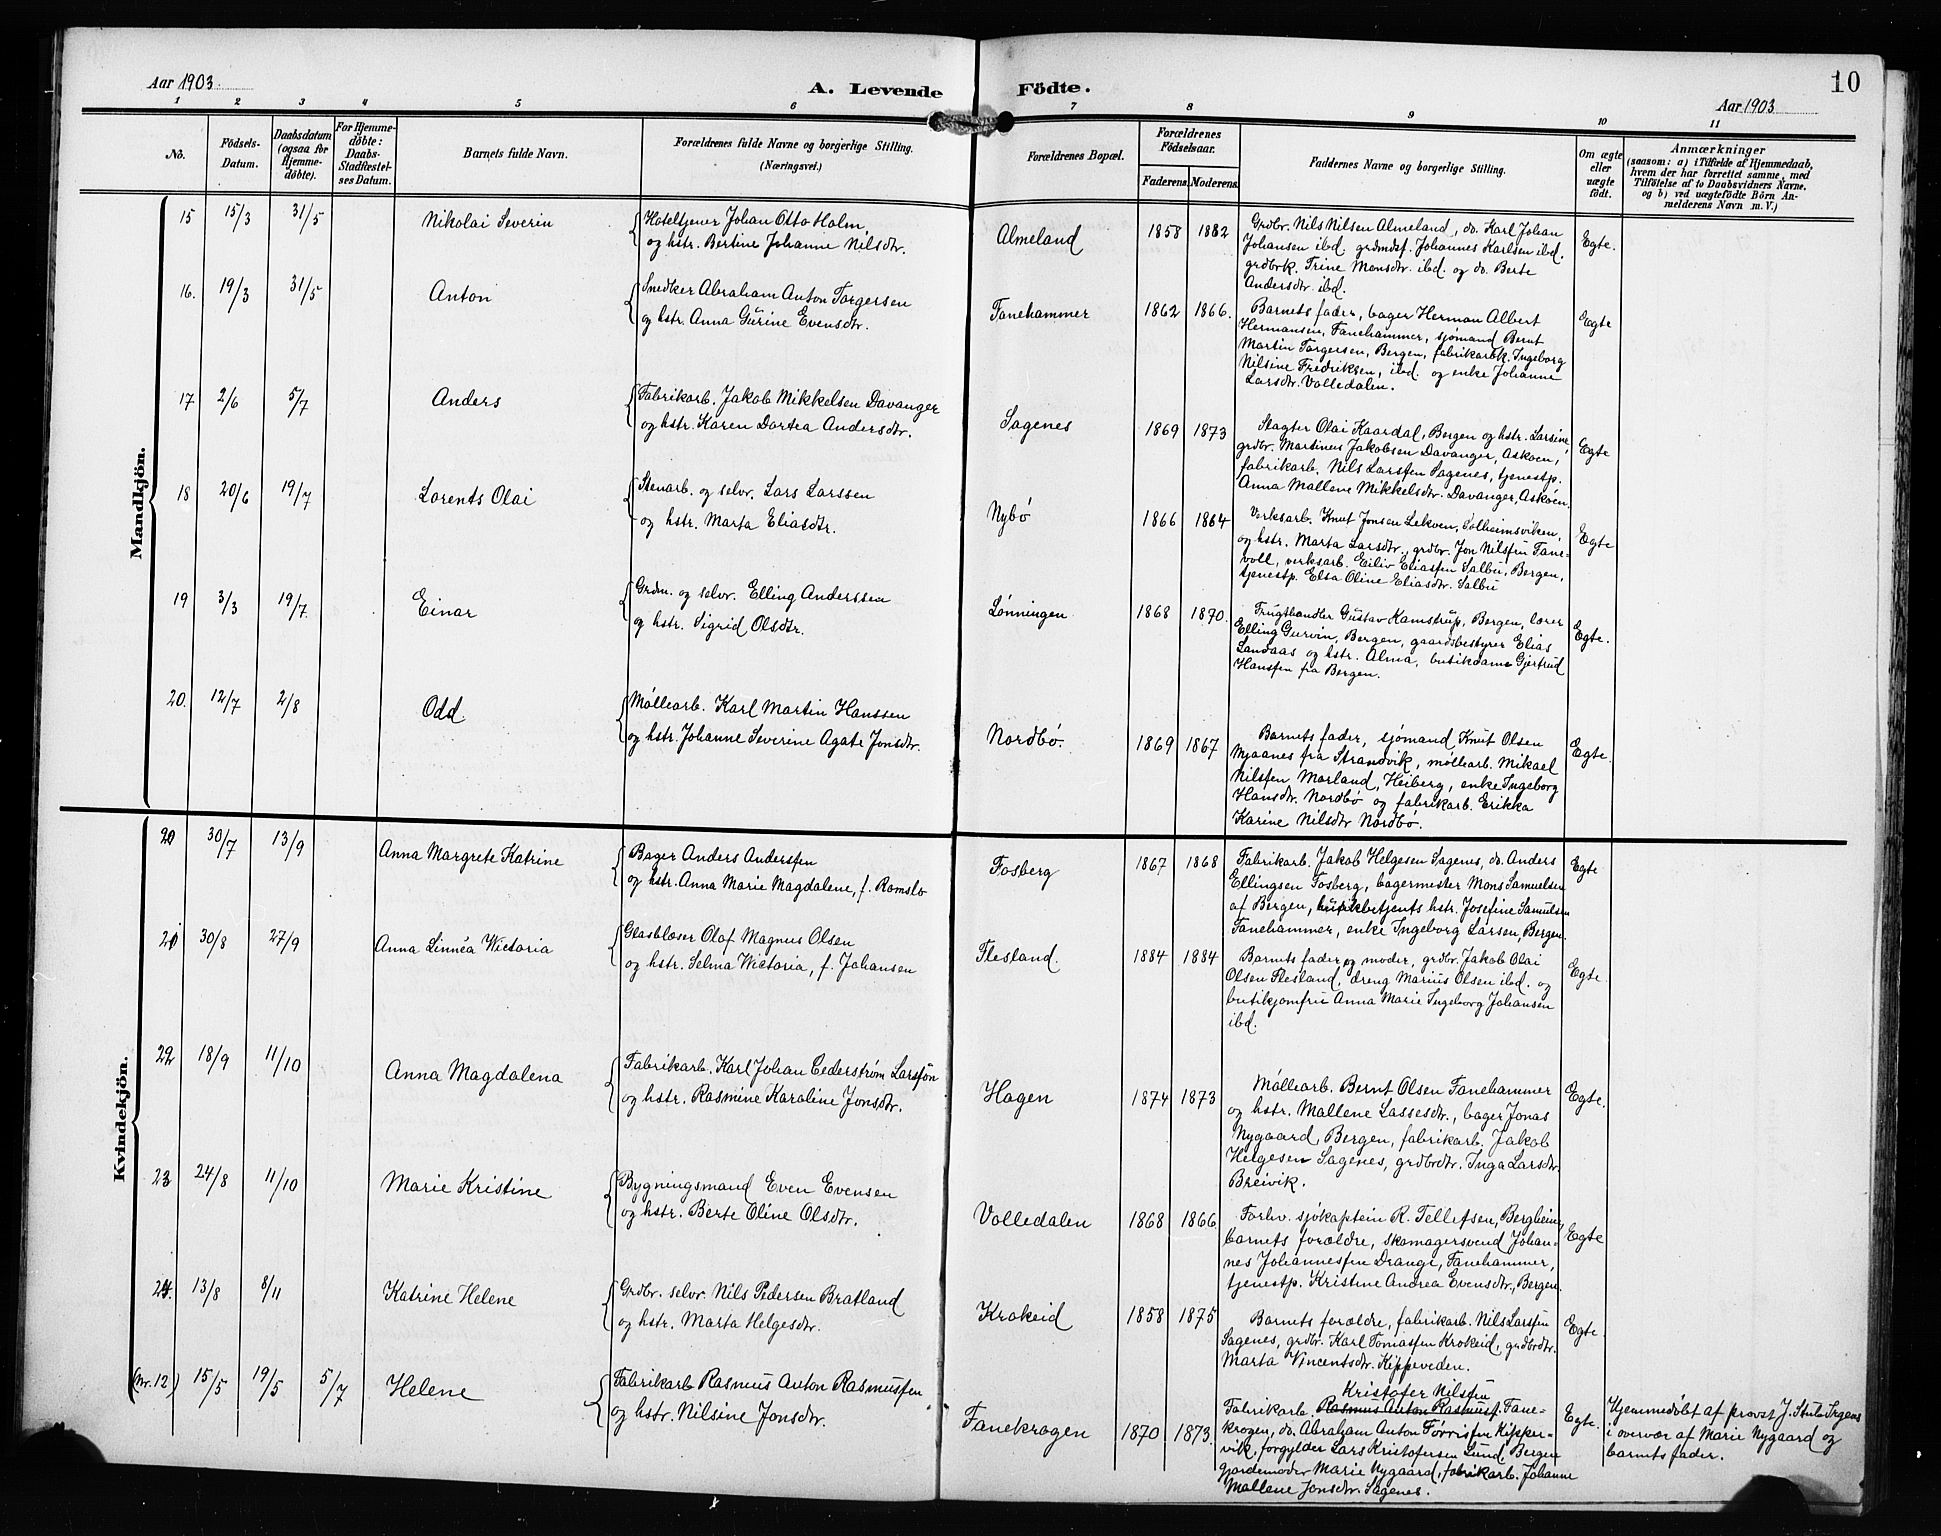 Aar 1903.
A. Levende Födte.
10
Aar 1903
1 2 3 4 5 6 7 8 9 10 11
No.
Födsels-Datum.
Daabsdatum (ogsaa for Hjemme-døbte).
For Hjemme-døbte: Daabs-Stadfæstel-ses Datum.
Barnets fulde Navn.
Forældrenes fulde Navne og borgerlige Stilling.
(Næringsvei.)
Forældrenes Bopæl.
Forældrenes Födselsaar.
Faderens. Moderens.
Faddernes Navne og borgerlige Stilling.
Om ægte eller uægte födt.
Anmærkninger
(saasom: a) i Tilfælde af Hjemmedaab,
hvem der har forrettet samme, med
Tilföielse af to Daabsvidners Navne.
og b) ved uægtefödte Börn An-
melderens Navn m. V.)
Mandkjön.
15 15/3 31/5 Nikolai Severin
Hoteltjener Johan Otto Holm
og hstr. Bertine Johanne Nilsdtr.
Almeland 1858 1882
Grdbr. Nils Nilsen Almeland, do. Karl Johan
Johansen ibd. grdmdsf. Johannes Karlsen ibd.
grdbrk. Trine Monsdtr. ibd. og do. Berte
Andersdtr. ibd.
Egte.
16. 19/3 31/5 Anton
Snedker Abraham Anton Torgersen
og hstr. Anna Gurine Evensdtr.
Fanehammer 1862 1866.
Barnets fader, bager Herman Albert
Hermansen, Fanehammer, sjømand Bernt
Martin Torgersen, Bergen, fabrikarbk. Ingeborg
Nilsine Fredriksen, ibd. og enke Johanne
Larsdtr. Volledalen.
Egte
17 2/6 5/7 Anders
Fabrikarb. Jakob Mikkelsen Davanger
og hstr. Karen Dortea Andersdtr.
Sagenes 1869 1873
Slagter Olai Kaardal, Bergen og hstr. Larsine,
grdbr. Martines Jakobsen Davanger, Askøen,
fabrikarb. Nils Larssen Sagenes, tjenestp.
Anna Mallene Mikkelsdtr. Davanger, Askøen.
Egte
18 20/6 19/7 Lorents Olai
Stenarb. og selv. Lars Larssen
og hstr. Marta Eliasdtr.
Nybø 1866 1864
Verksarb. Knut Jonsen Lekven, Solheimsviken,
og hstr. Marta Larsdtr., grdbr. Jon Nilssen Fane-
voll, verksarb. Eiliv Eliassen Salbu, Bergen,
tjenestp. Elsa Oline Eliasdtr. Salbu
Egte
19 3/3 19/7. Einar
Grdm. og selv. Elling Anderssen
og hstr. Sigrid Olsdtr.
Lønningen 1868 1870.
Frugthandler Gustav Kamstrup, Bergen, lærer
Elling Gurvin, Bergen, gaardsbestyrer Elias
Landaas og hstr. Alma, butikdame Gjertrud
Hanssen fra Bergen.
Egte.
20. 12/7 2/8 Odd
Møllearb. Karl Martin Hanssen
og hstr. Johanne Severine Agate Jonsdtr.
Nordbø. 1869 1867
Barnets fader, sjømand Knut Olsen
Mjaanes fra Strandvik, møllearb. Mikael
Nilssen Morland, Heiberg, enke Ingeborg
Hansdtr. Nordbø og fabrikarb. Erikka
Karine Nilsdtr Nordbø.
Egte.
Kvindekjön.
20 30/7 13/9 Anna Margrete Katrine
Bager Anders Anderssen
og hstr. Anna Marie Magdalene, f. Romslo
Fosberg 1867 1868
Fabrikarb. Jakob Helgesen Sagenes, do. Anders
Ellingsen Fosberg, bagermester Mons Samuelsen
af Bergen, butikbetjents hstr. Josefine Samuelsen
Fanehammer, enke Ingeborg Larsen, Bergen.
Egte
21 30/8 27/9 Anna Linnéa Wictoria
Glasblæser Olof Magnus Olsen
og hstr. Selma Wictoria, f. Johansen
Flesland. 1884 1884
Barnets fader og moder, grdbr. Jakob Olai
Olsen Flesland, dreng Marius Olsen ibd. og
butikjomfru Anna Marie Ingeborg Johansen
ibd.
Egte.
22 18/9 11/10 Anna Magdalena
Fabrikarb. Karl Johan Cederstrøm Larsson
og hstr. Rasmine Karoline Jonsdtr.
Hagen 1874 1873
Møllearb. Bernt Olsen Fanehammer
og hstr. Mallene Lassesdtr., bager Jonas
Nygaard, Bergen, fabrikarb. Jakob
Helgesen Sagenes, grdbrdtr. Inga Larsdtr.
Breivik.
Egte.
23 24/8 11/10 Marie Kristine
Bygningsmand Even Evensen
og hstr. Berte Oline Olsdtr.
Volledalen 1868 1866.
Forhv. sjökaptein R. Tellefsen, Bergheim,
barnets forældre, skomagersvend Johan-
nes Johannessen Drange, Fanehammer,
tjenestp. Kristine Andrea Evensdtr, Bergen.
Egte
24. 13/8 8/11 Katrine Helene
Grdbr. selv. Nils Pedersen Bratland
og hstr. Marta Helgesdtr.
Krokeid 1858 1875
Barnets forældre, fabrikarb. Nils Larssen
Sagenes, grdbr. Karl Tomassen Krokeid, grdbrdtr.
Marta Vincentsdtr. Kippeveden.
Egte.
(Nr. 12) 15/5 19/5 5/7 Helene
Fabrikarb Rasmus Anton Rasmussen
og hstr. Nilsine Jonsdtr.
Fanekrogen 1870 1873.
Kristofer Nilssen
Fabrikarb. Rasmus Anton Rasmuss. Fane-
krogen, do. Abraham Anton Tørrissen Kipper-
vik, forgylder Lars Kristofersen Lund, Bergen
gjordemoder Marie Nygaard, fabrikarb. Johanne
Mallene Jonsdtr. Sagenes.
Egte.
Hjemmedøbt af provst J. Stub Irgens
i overvær af Marie Nygaard og
barnets fader.